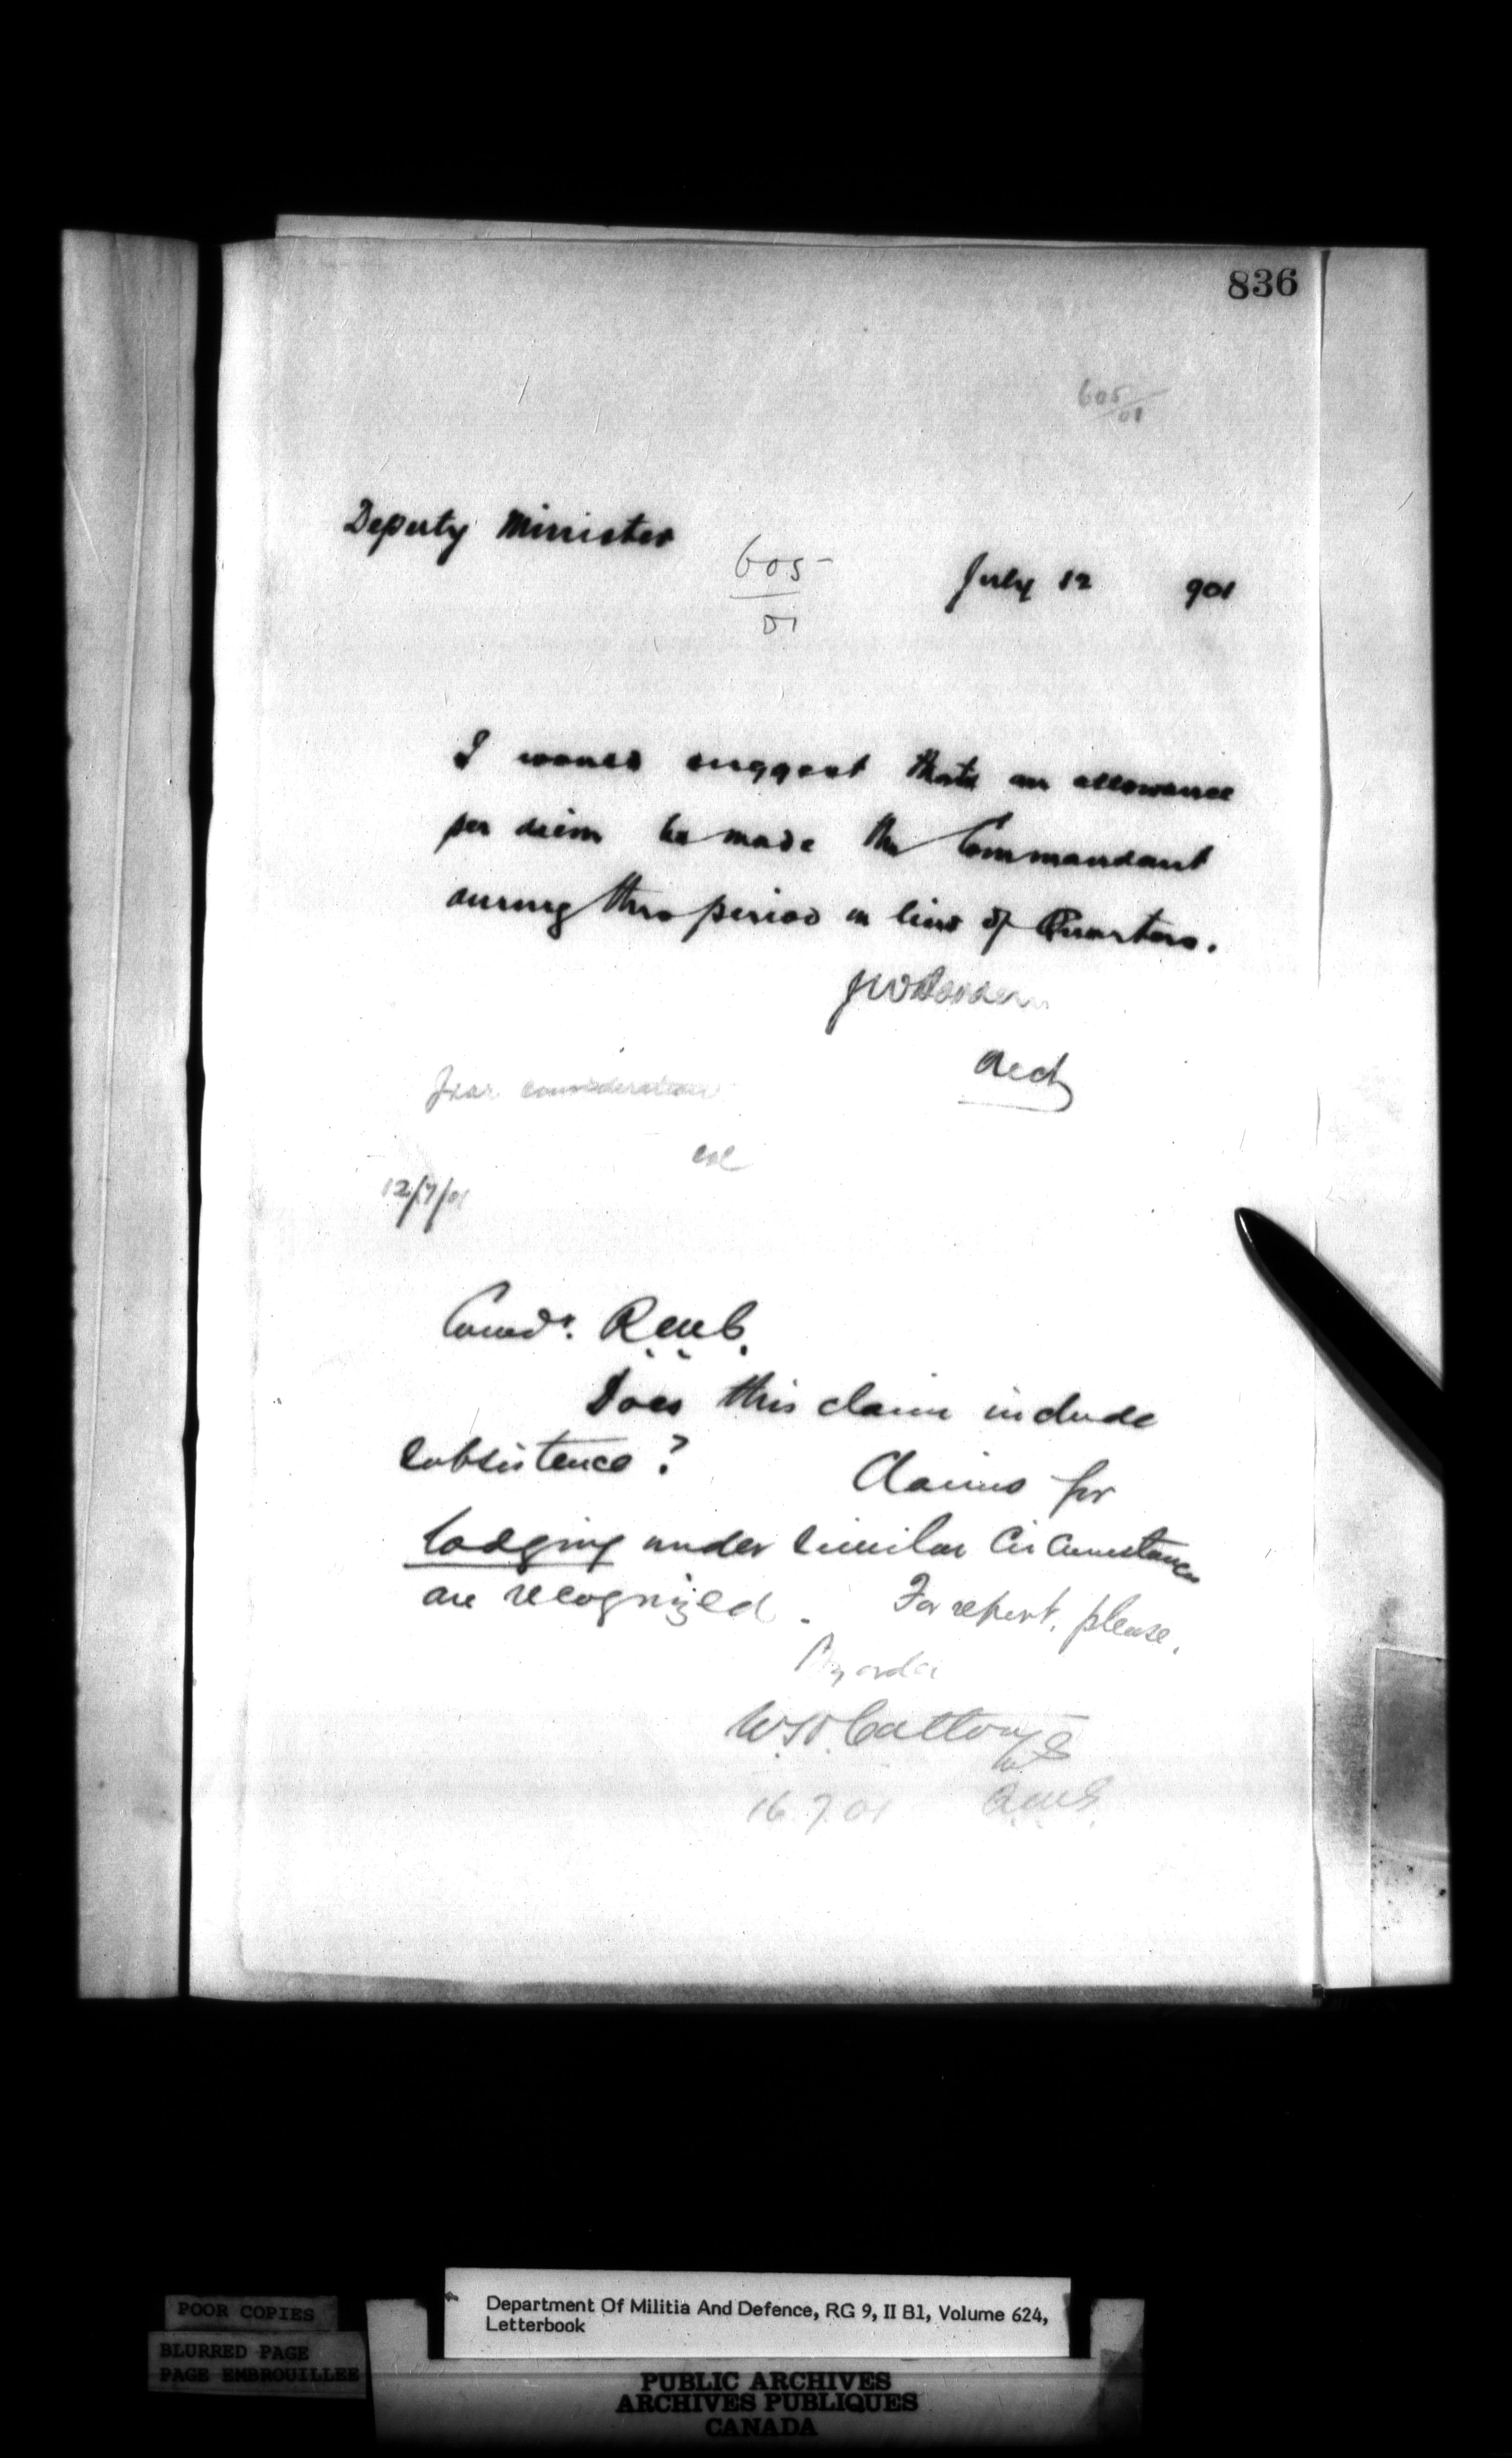 836
605/01
Deputy Minister
605/01
July 12 901
I would suggest that an allowance
per diem be made the Commandant
during this period in lieu of Quarters.
JWBorden
consideration
12/7/01
Comdt. R.M.C.
Does this claim include
subsistence? Claims for
lodging under similar circumstances
are recognized. For report, please.
By order
W.H. Cotton
16.7.01
Department Of Militia And Defence, RG 9, II B1, Volume 624,
Letterbook
POOR COPIES
BLURRED PAGE
PAGE EMBROUILLEE
PUBLIC ARCHIVES
ARCHIVES PUBLIQUES
CANADA